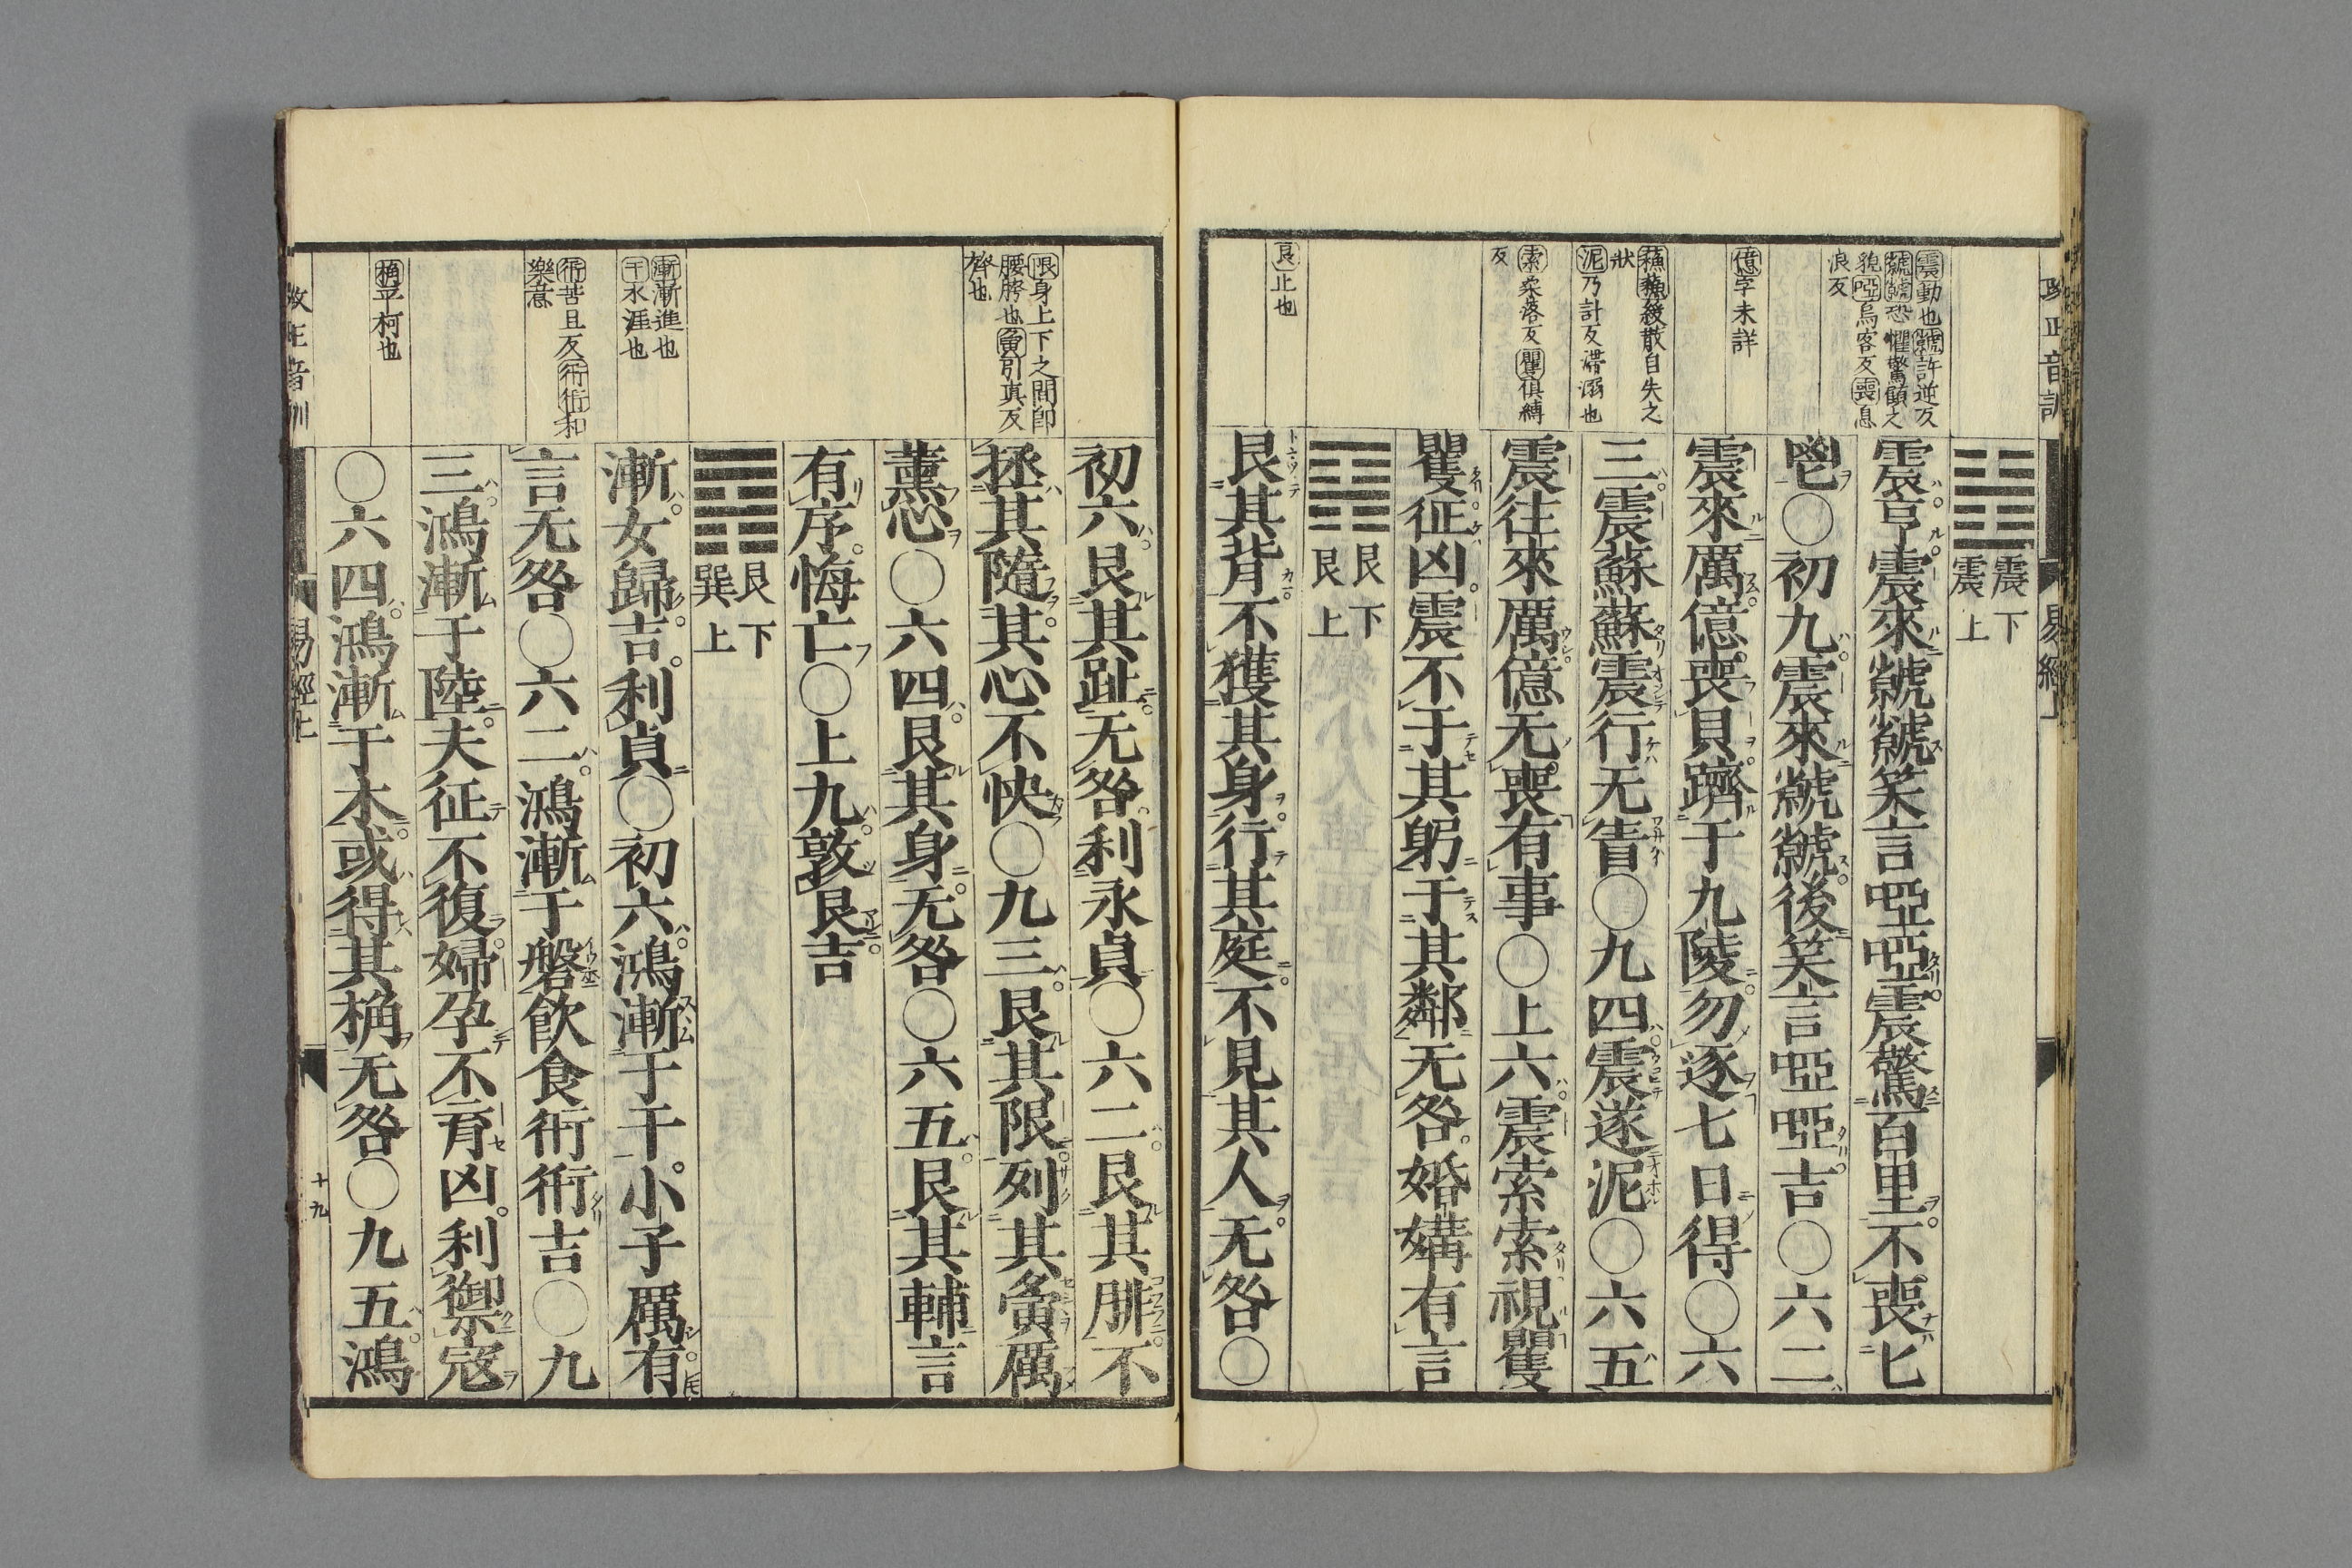 改正音訓
易經下
震動也虩許逆反
虩虩恐懼驚顧之
貌啞烏客反喪息
浪反
億字未詳
蘇蘇緩散自失之
狀
泥乃計反滯溺也
索桑落反矍俱縛
反
艮止也
震下
震上
震亨震來虩虩笑言啞啞震驚百里不喪匕
鬯○初九震來虩虩後笑言啞啞吉○六二
震來厲億喪貝躋于九陵勿逐七日得○六
三震蘇蘇震行无眚○九四震遂泥○六五
震往來厲億无喪有事○上六震索索視矍
矍征凶震不于其躬于其鄰无咎婚媾有言
艮下
艮上
艮其背不獲其身行其庭不見其人无咎○
限身上下之間卽
腰胯也夤引真反
膂也
漸漸進也
干水涯也
衎苦旦反衎衎和
樂意
桷平柯也
初六艮其趾无咎利永貞○六二艮其腓不
拯其隨其心不快○九三艮其限列其夤厲
薰心○六四艮其身无咎○六五艮其輔言
有序悔亡○上九敦艮吉
艮下
巽上
漸女歸吉利貞○初六鴻漸于干小子厲有
言无咎○六二鴻漸于磐飮食衎衎吉○九
三鴻漸于陸夫征不復婦孕不育凶利禦寇
○六四鴻漸于木或得其桷无咎○九五鴻
改正音訓
易經下
十九